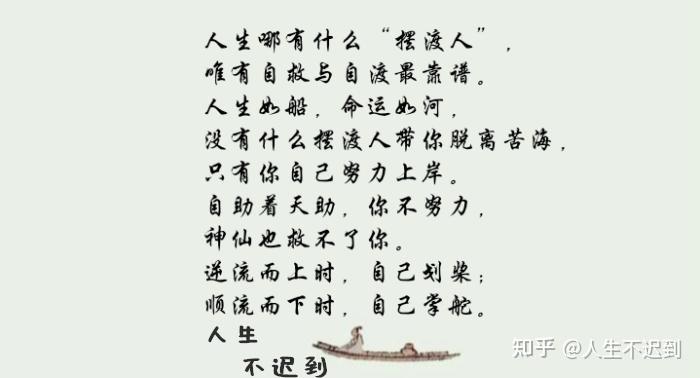 人生哪有什么“摆渡人”，
唯有自救与自渡最靠谱。
人生如船，命运如河，
没有什么摆渡人带你脱离苦海，
只有你自己努力上岸。
自助着天助，你不努力，
神仙也救不了你。
逆流而上时，自己划桨；
顺流而下时，自己掌舵。
人生
不迟到
知乎 @人生不迟到